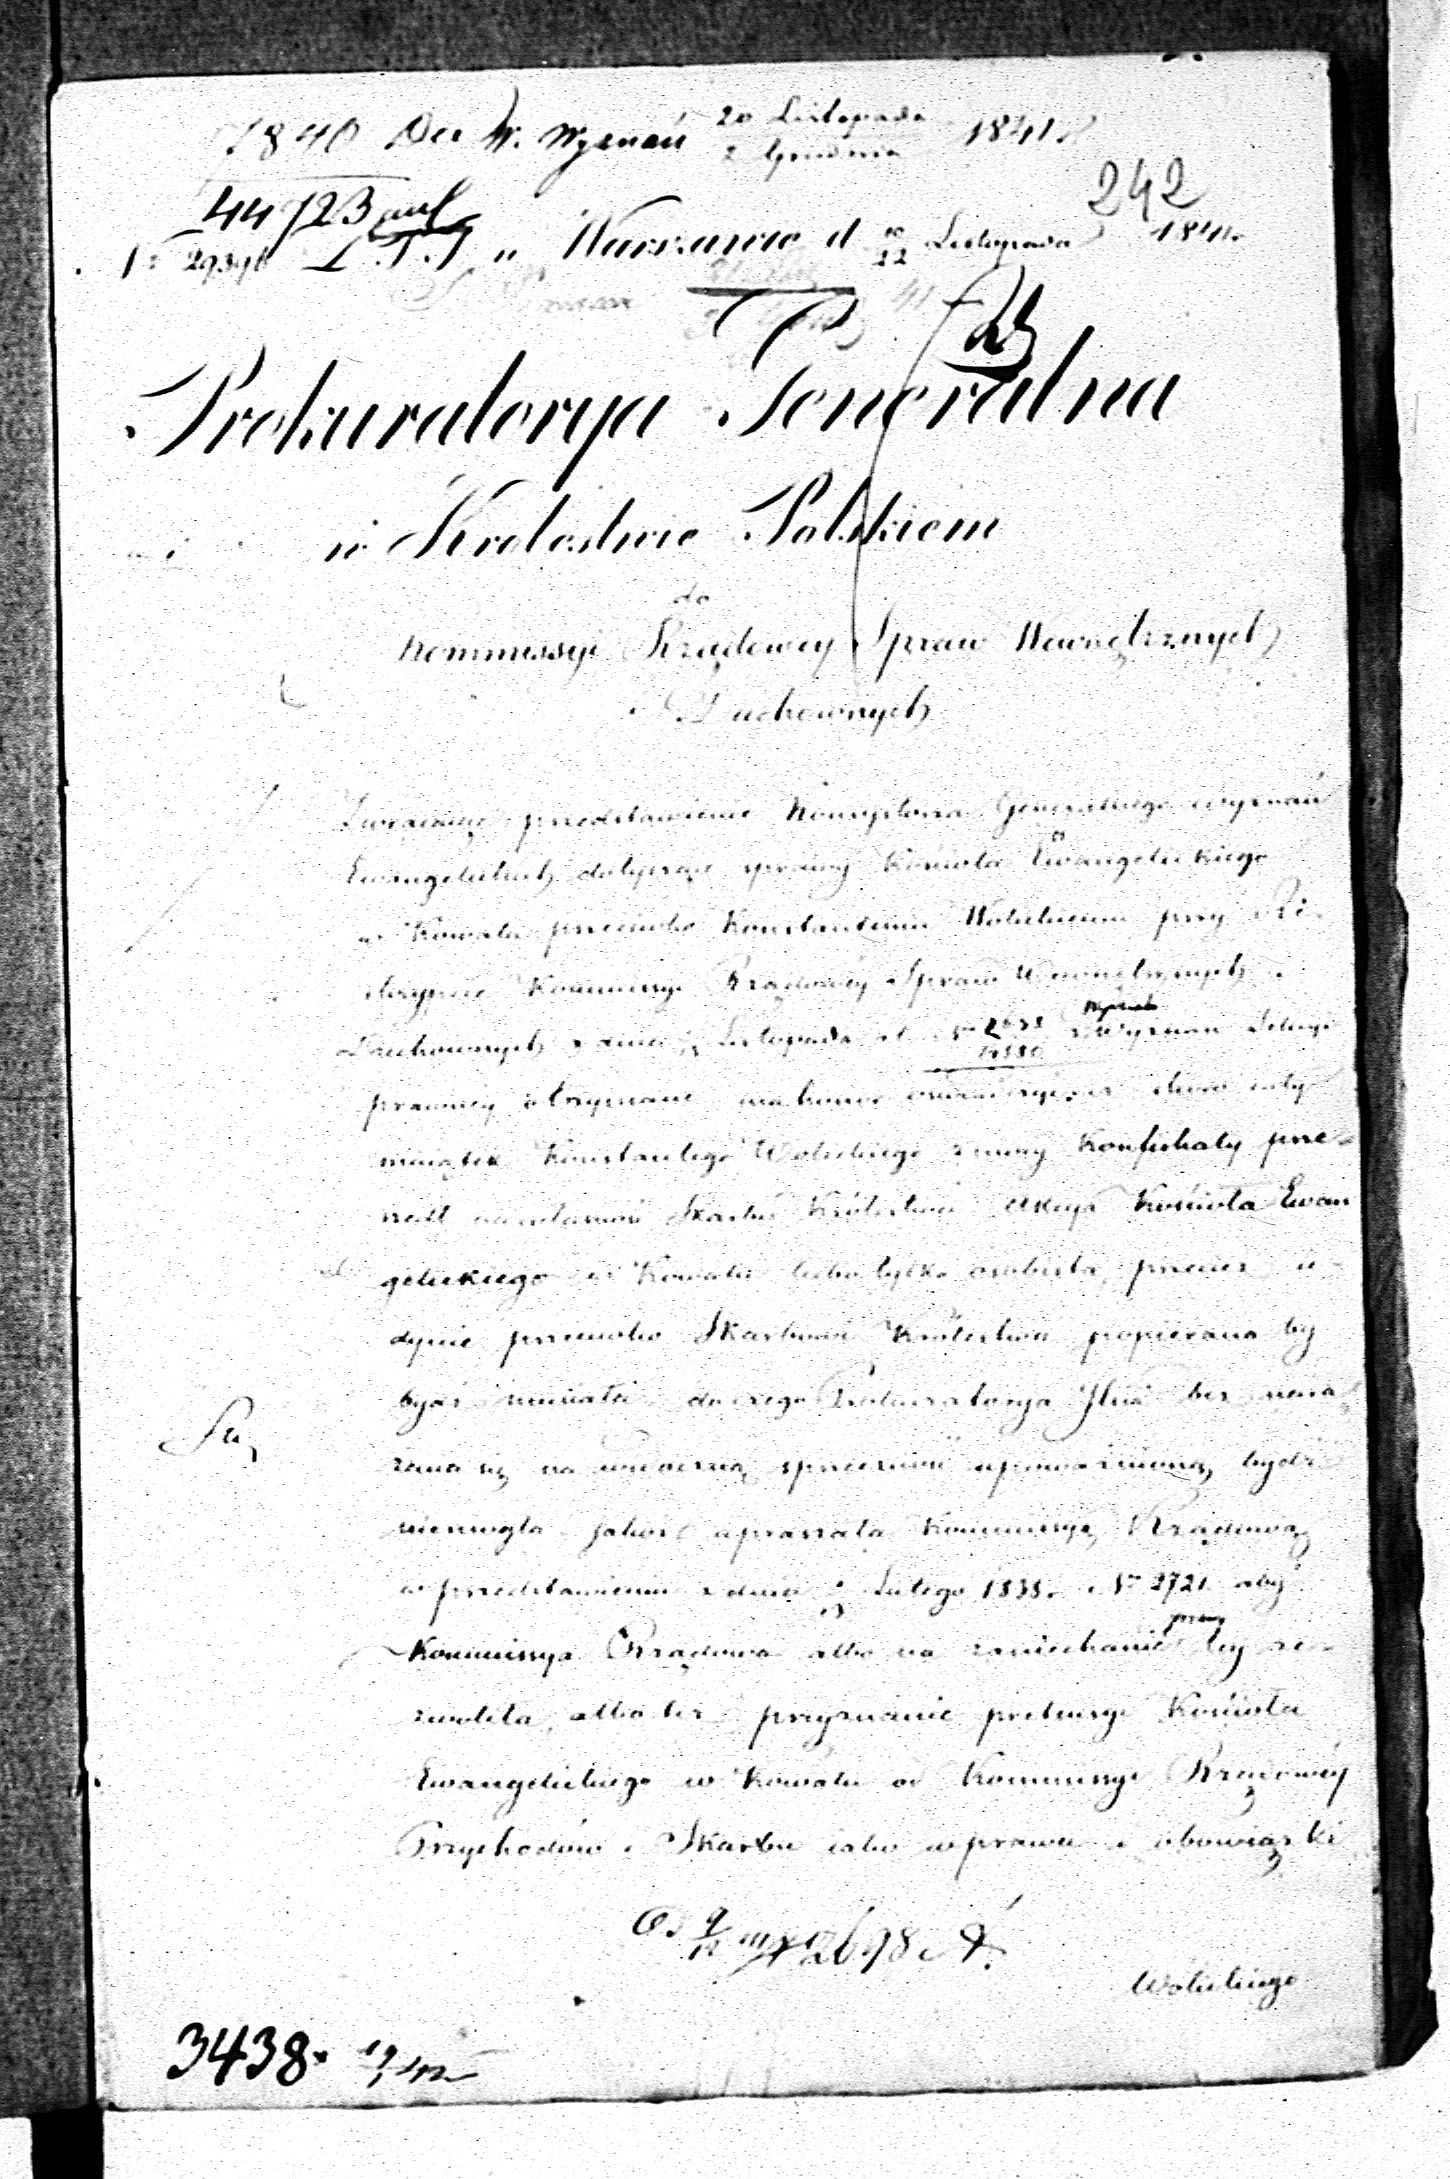 7840 Der W. Wyznań 20 Listopada
2 Grudnia 1841.
242
44723
N 29396 w Warszawie d 10/22 Listopada 1841.
Prokuratorya Jeneralna
w Krolestwie Polskiem
do
Kommissyi Rządowey Spraw Wewnętrznych
i Duchownych
Zwracając przedstawienie Konsystorza Generalnego wyznań
Ewangelickich dotyczące sprawy Kościoła Ewangelickiego
w Kowalu przeciwko Konstantemu Wolickiemu przy Re-
skrypcie Kommissyi Rządowey Spraw Wewnętrznych i
Duchownych z dnia Listopada r b N 2698/14880 z Wydziału Wyznań Sekcyi
prawney otrzymane ma honor oświadczyć, iż skoro cały
majątek Konstantego Wolickiego z mocy Konfiskaty prze-
szedł na własność Skarbu Królestwa akcya Kościoła Ewan
gelickiego w Kowalu lubo tylko osobista, przecież je-
dynie przeciwko Skarbowi Królestwa popierana by
bydź musiała do czego Prokuratorya Jlna bez nara-
żenia się na widoczną sprzeczność upoważnioną bydź
niemogła jakoż upraszała Kommissyą Rządową
w przedstawieniu z dnia Lutego 1838. N 2721 aby
Kommissya Rządowa albo na zaniechanie sprawy tey ze-
zwoliła, albo też przyznanie pretensyi Kościoła
Ewangelickiego w Kowalu od Kommissyi Rządowey
Przychodów i Skarbu iako w prawa i obowiązki
2698
Wolickiego
3438.